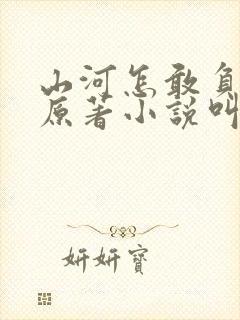 山河怎敢負
原著小說叫
妍妍寶